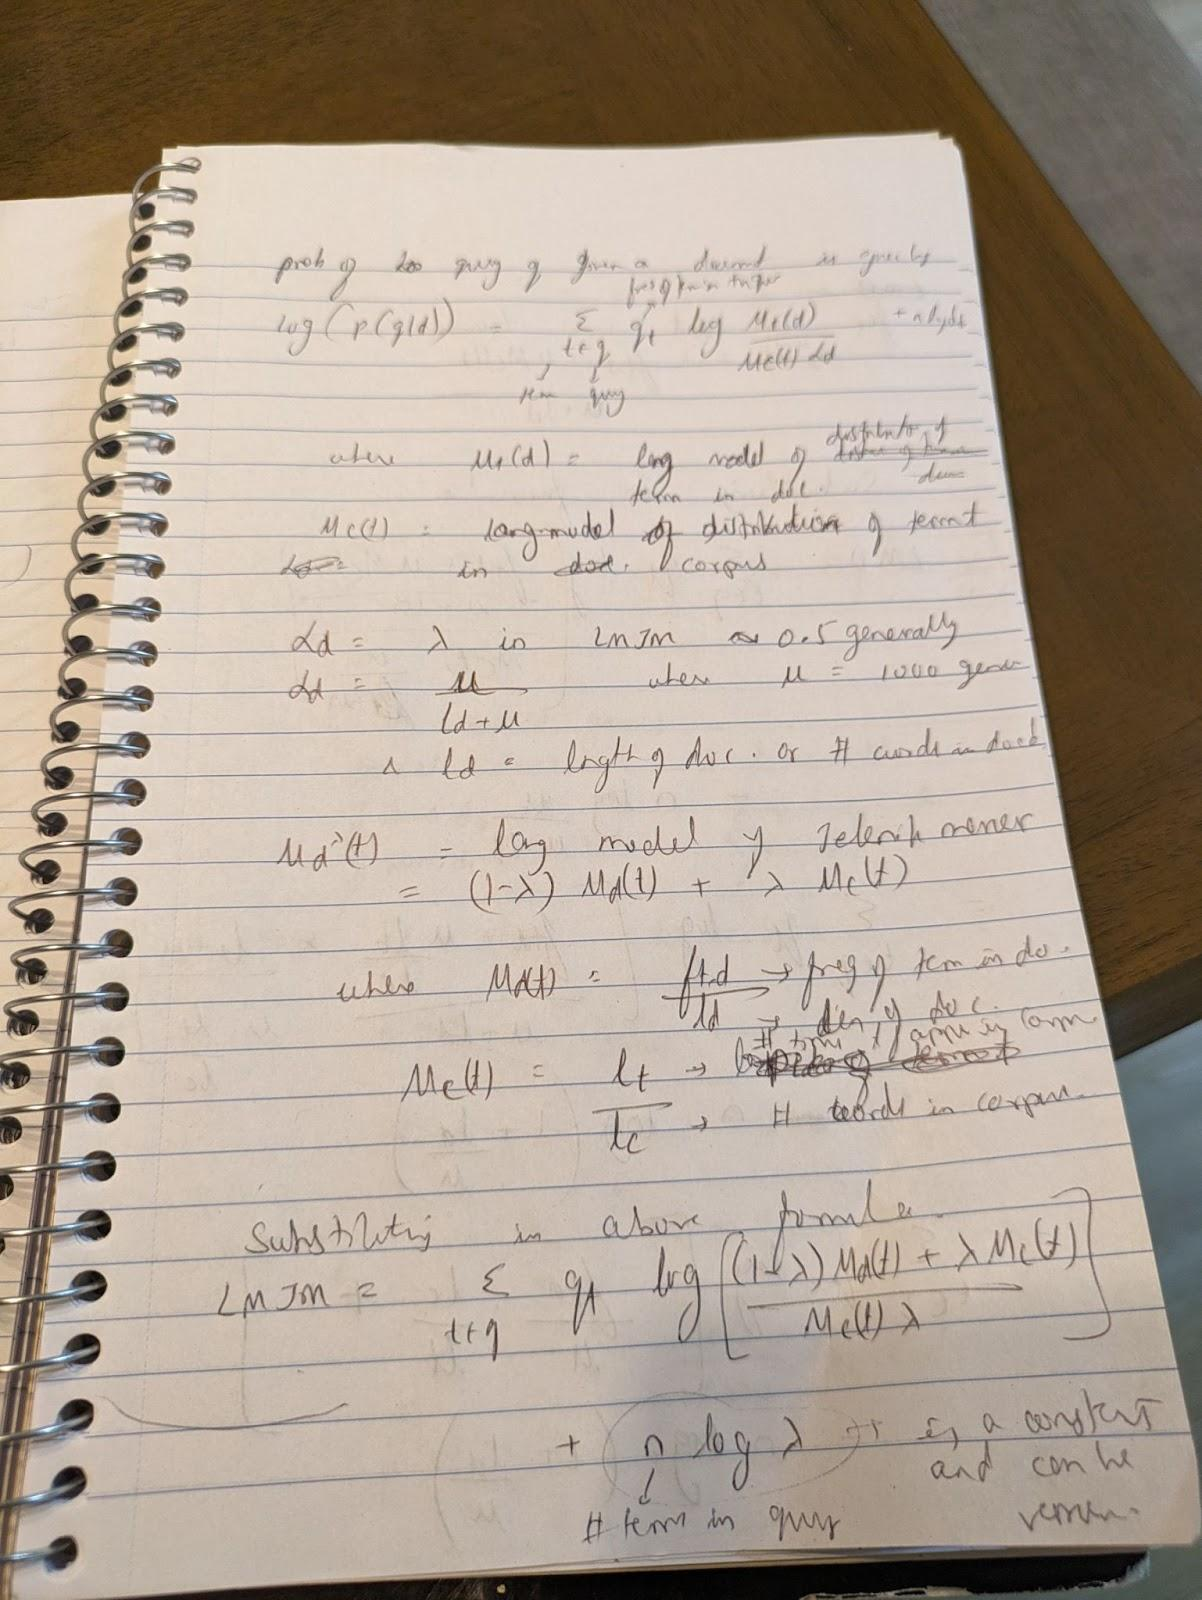 prob of query q given a document is given by
freq of term in query
log(p(q|d)) = Σ qt log Mt(d) / Mc(t) αd + n log αd
t∈q
term query
where Mt(d) = lang model of distribution of
term in doc.
Mc(t) = lang model of distribution of term t
in corpus
αd = λ in LMJM ~ 0.5 generally
αd = μ / ld+μ where μ = 1000
ld = length of doc. or # words in
Md^λ(t) = lang model of Jelenik mercer
= (1-λ) Md(t) + λ Mc(t)
where Md(t) = ft,d → freq of term in do.
ld → len of doc.
# times t in
Mc(t) = lt →
lc → # words in corpus.
Substituting in above formula.
LMJM = Σ qt log [ (1-λ) Md(t) + λ Mc(t) / Mc(t) λ ]
t∈q
+ n log λ → is a constant
and can be
# term in query